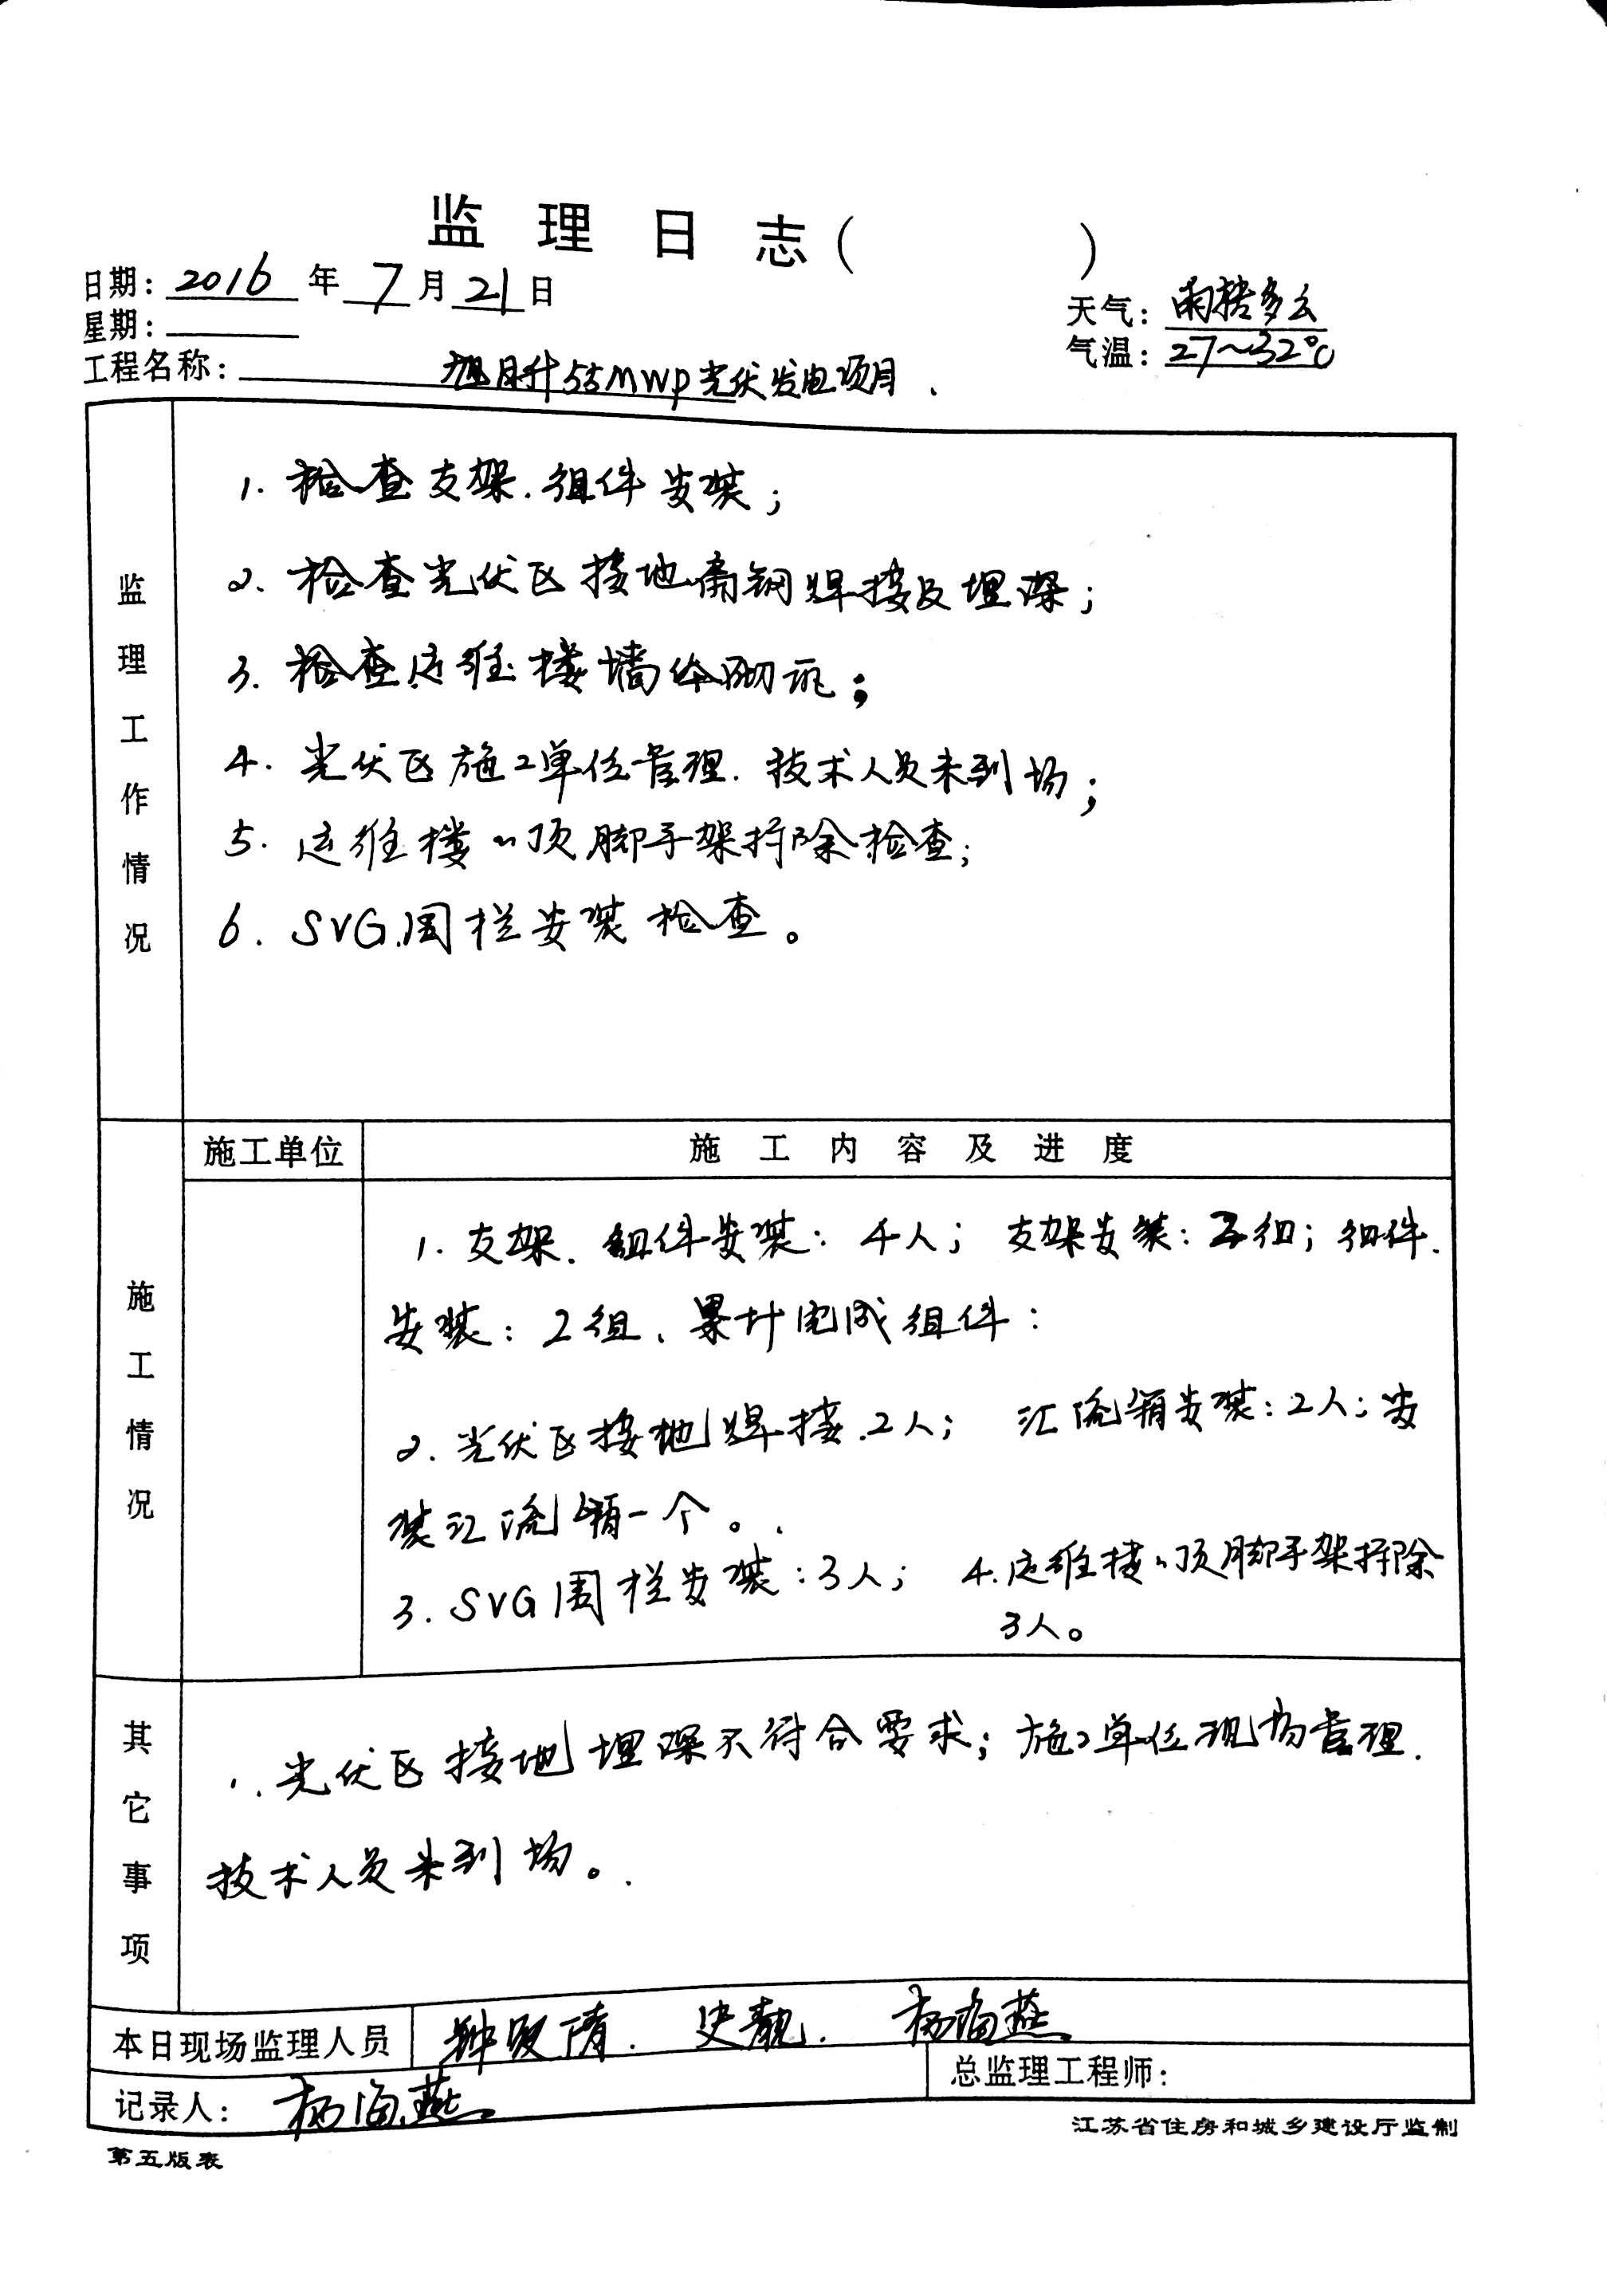 监理日志（　　）
日期：2016年7月21日
天气：雨转多云
星期：
气温：27~32℃
工程名称：旭月升55MWp光伏发电项目.
监理工作情况
1. 检查支架.组件安装；
2. 检查光伏区接地扁钢焊接及埋深；
3. 检查运维楼墙体砌筑；
4. 光伏区施工单位管理.技术人员未到场；
5. 运维楼 顶脚手架拆除检查；
6. SVG围栏安装检查。
施工单位
施工内容及进度
施工情况
1. 支架.组件安装：4人；支架安装：3组；组件.
安装：2组、累计完成组件：
2. 光伏区接地焊接.2人；汇流箱安装：2人；安
装汇流箱一个。
3. SVG围栏安装：3人；4.运维楼 顶脚手架拆除
3人。
其它事项
1. 光伏区接地埋深不符合要求；施工单位现场管理.
技术人员未到场。
本日现场监理人员 史靓. 杨海燕
记录人：杨海燕
总监理工程师：
江苏省住房和城乡建设厅监制
第五版表